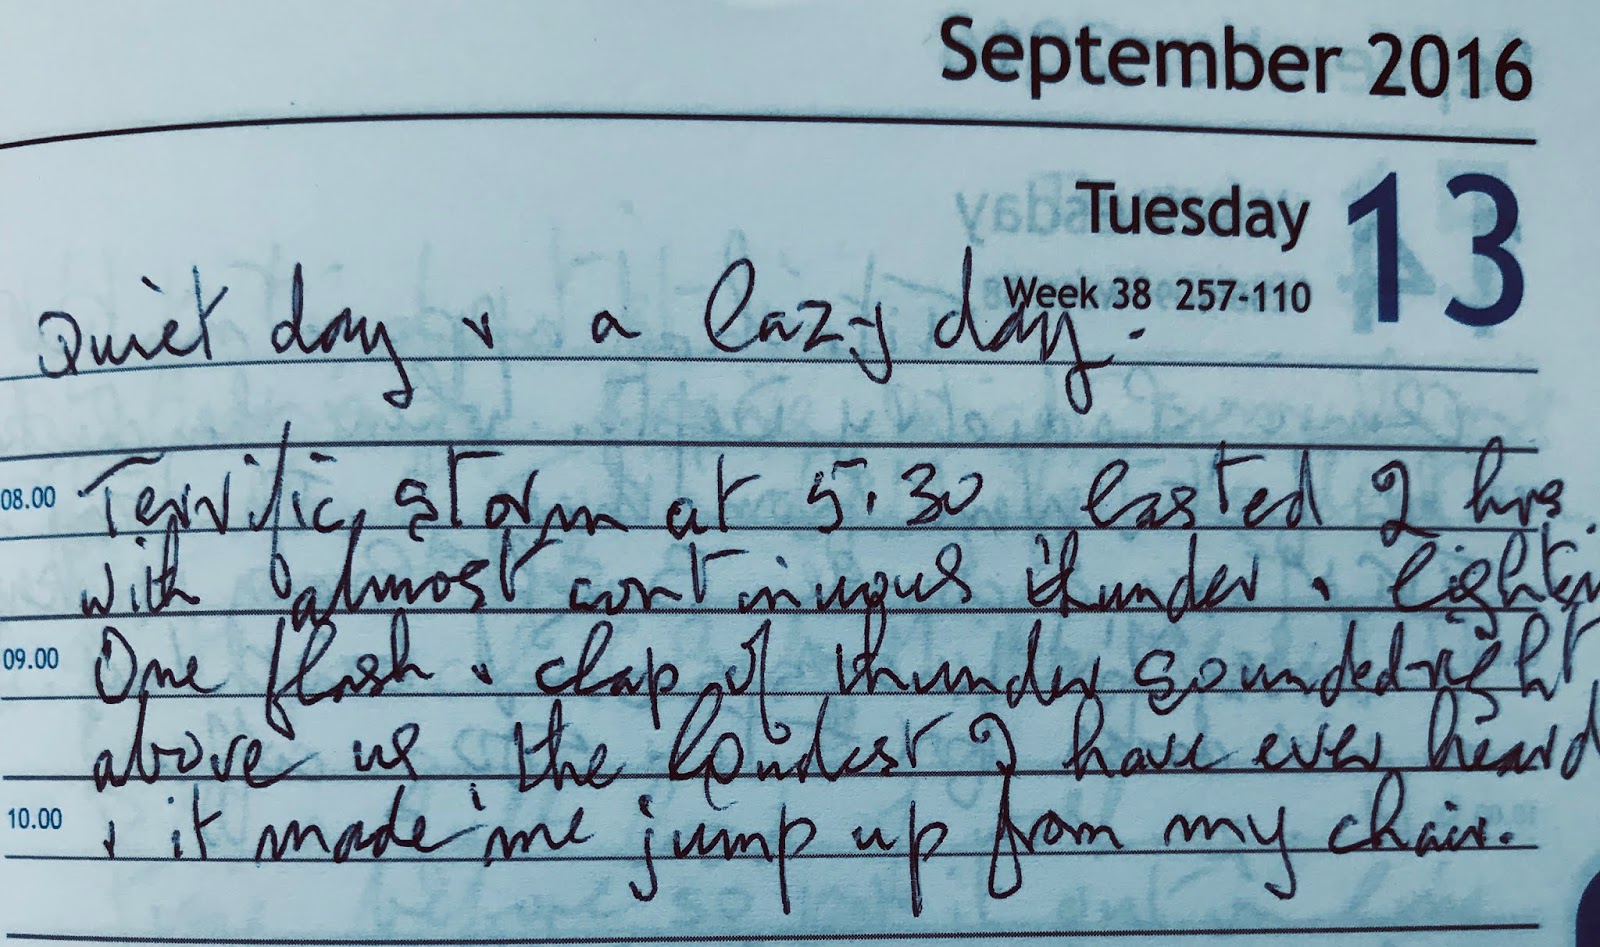 September 2016
Tuesday 13
Week 38 257-110
Quiet day & a lazy day.
08.00 Terrific storm at 5.30 lasted 2 hrs.
with almost continuous thunder & lightni
09.00 One flash & clap of thunder sounded right
above us, the loudest I have ever heard
10.00 & it made me jump up from my chair.